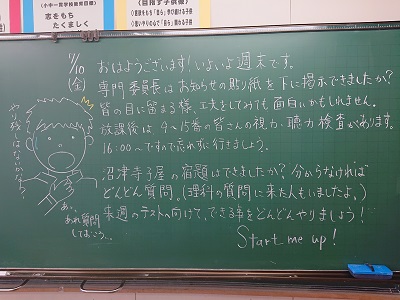 志をもち
たくましく
11/10
(金)
おはようございます!いよいよ週末です。
専門委員長はお知らせの貼り紙を下に掲示できましたか?
皆の目に留まる様、工夫してみても面白いかもしれません。
放課後は 9〜15番の皆さんの視力・聴力検査があります。
16:00〜ですので忘れずに行きましょう。
沼津寺子屋の宿題はできましたか?分からなければ
どんどん質問。(理科の質問に来た人もいましたよ。)
来週のテストへ向けて、できる事をどんどんやりましょう!
Start me up!
やり残しはないかな?
あぁ、
あれ質問
しておこう…